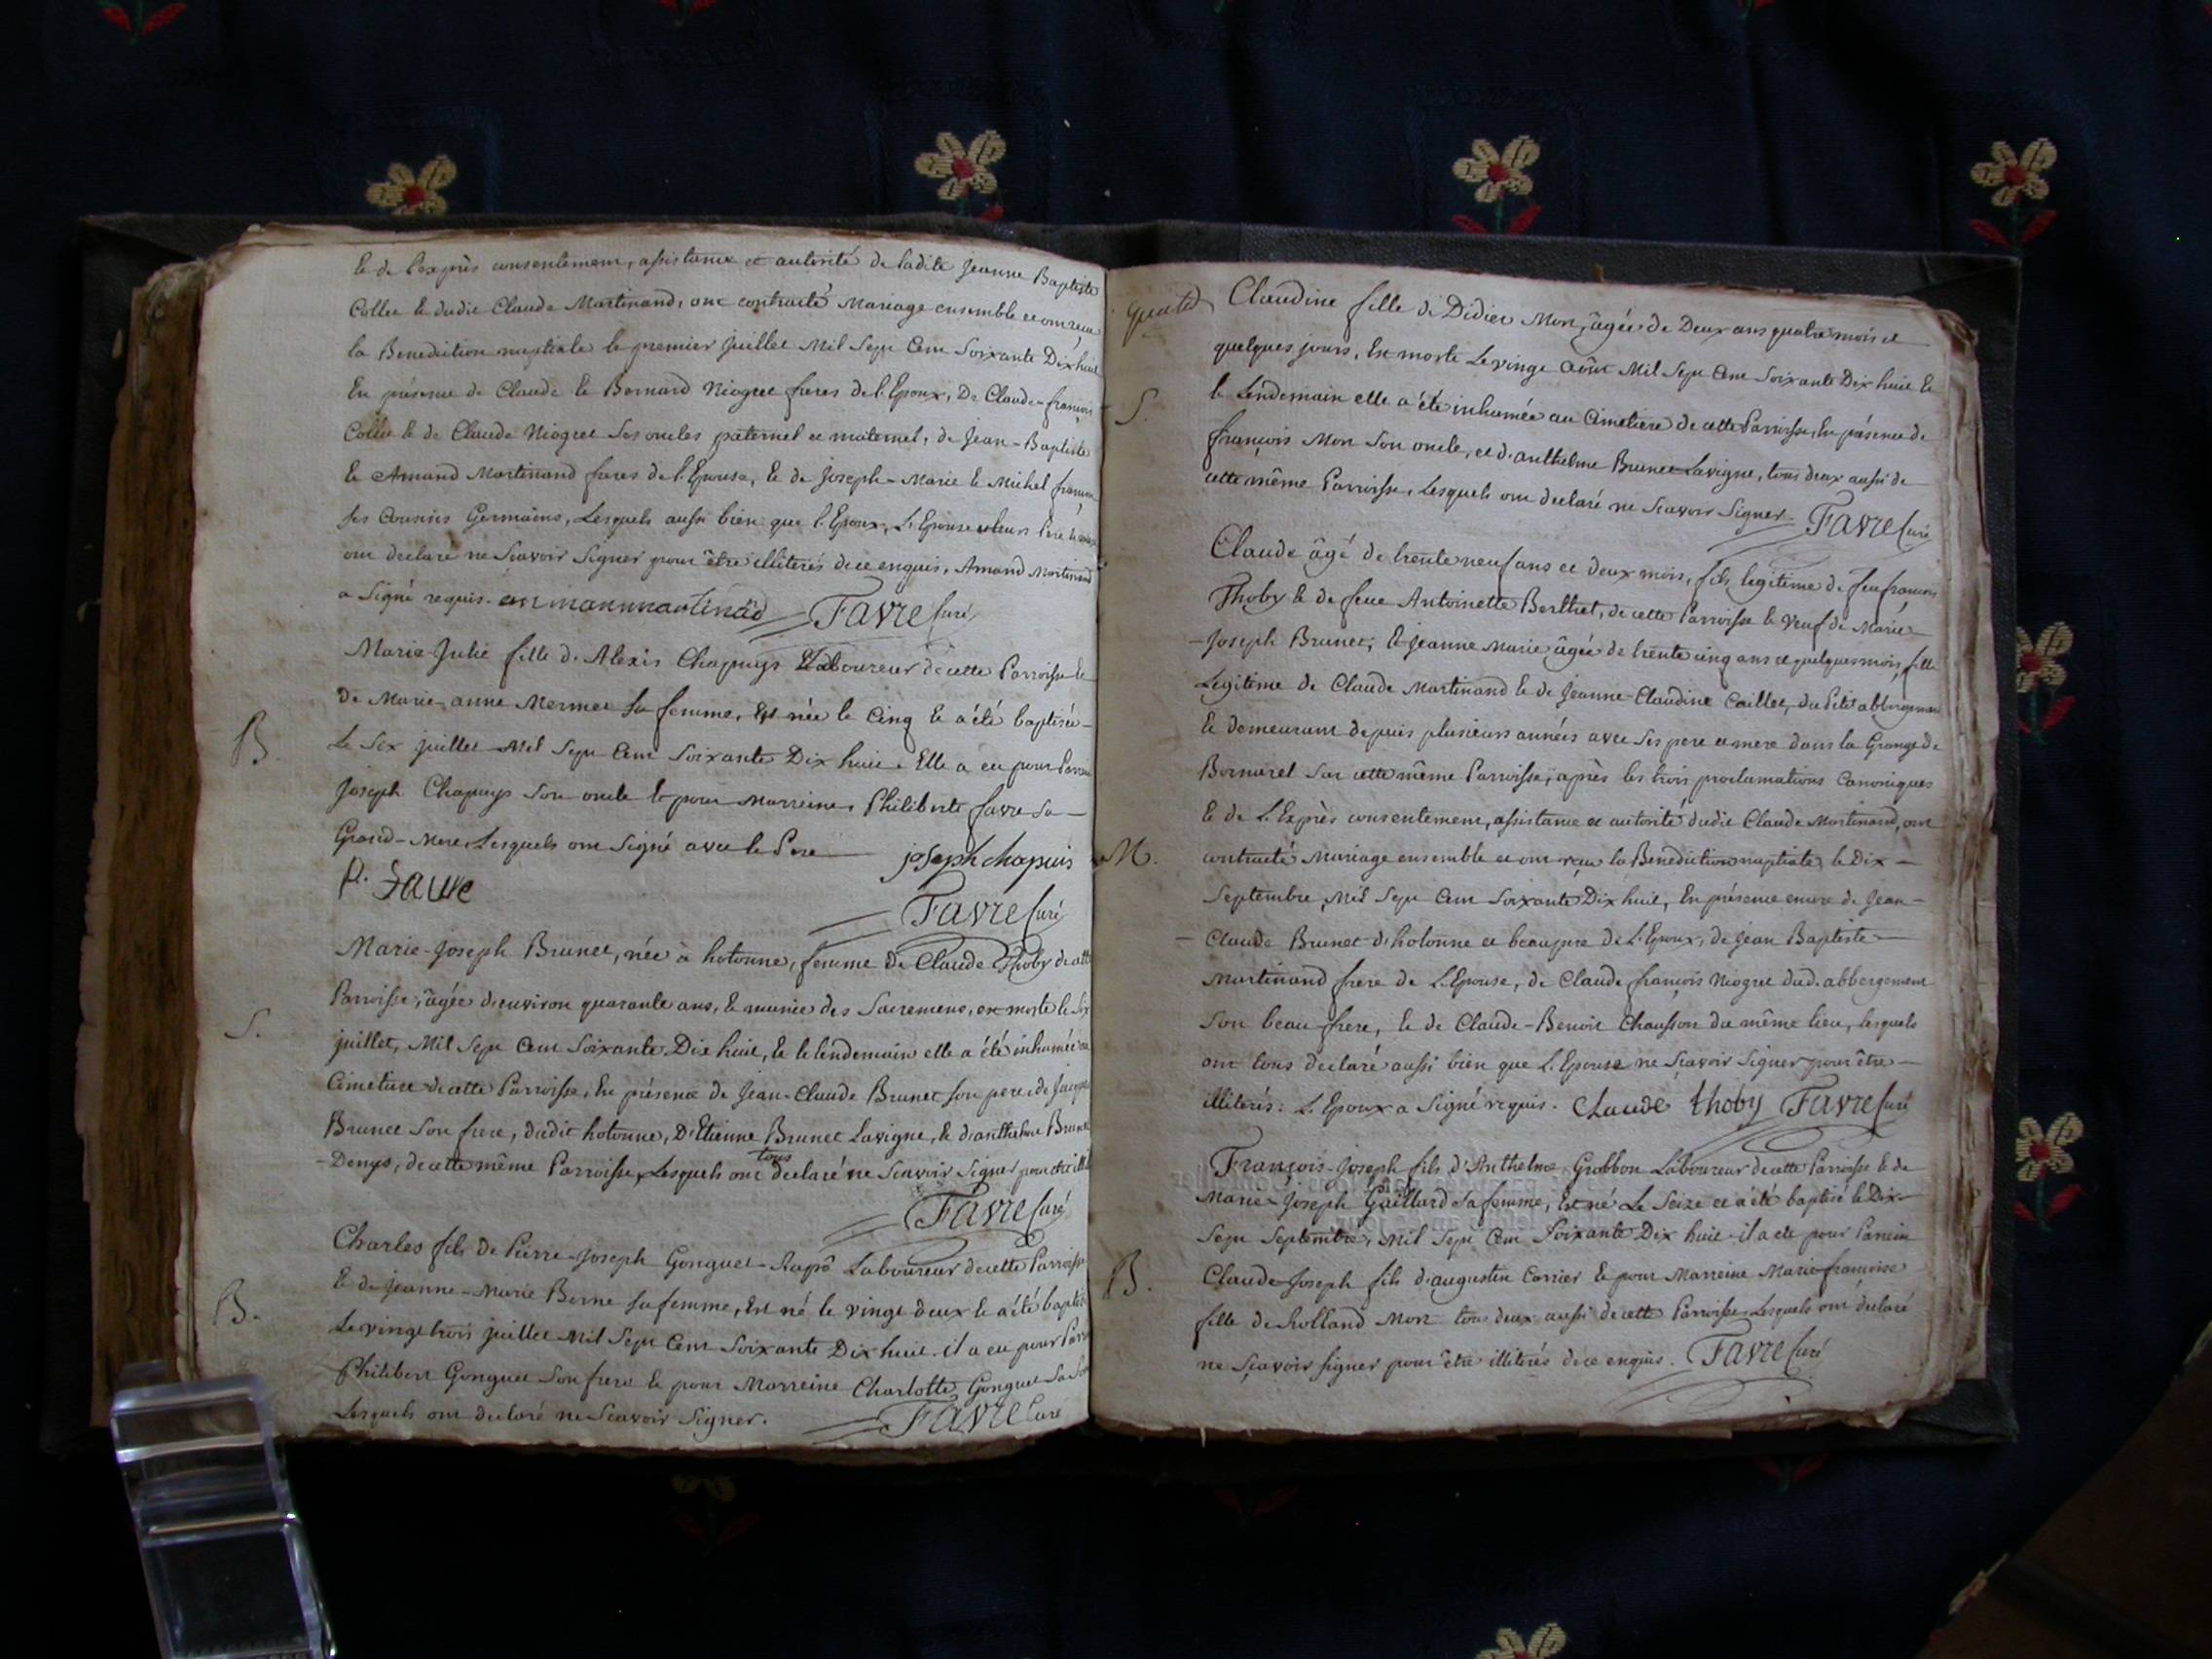 Et de l'exprès consentement, assistance et autorité de ladite Jeanne Baptiste
Collet et dudit Claude Martinand, ont contracté Mariage ensemble et ont reçu
la Benediction nuptiale le premier juillet Mil Sept Cent Soixante Dix huit
En présence de Claude et Bernard Niogret freres de l'Epoux, De Claude-françois
Collet et de Claude Niogret ses oncles paternel et maternel, de Jean-Baptiste
et Amand Martinand freres de l'Epouse, et de Joseph-Marie et Michel
ses Cousins Germains, Lesquels aussi bien que l'Epoux, L'Epouse et leurs
ont declaré ne Scavoir Signer pour être illiterés de ce enquis, Amand Martinand
a Signé requis. Favre Curé
Marie-Julie fille d'Alexis Chapuys Laboureur de cette Parroisse et
de Marie-anne Mermet sa femme, Est née le Cinq et a été baptisée
Le Six juillet Mil Sept Cent Soixante Dix huit. Elle a eu pour Parrain
B.
Joseph Chapuys Son oncle et pour Marreine Philiberte favre sa
Grand-Mere, Lesquels ont Signé avec le Pere joseph chapuis
p. favre
Favre Curé
Marie-Joseph Brunet, née à hotonne, femme de Claude Thoby de cette
Parroisse, âgée d'environ quarante ans, et munie des Sacremens, est morte le Six
S.
juillet, Mil Sept Cent Soixante Dix huit, et le lendemain elle a été inhumée au
Cimetiere de cette Parroisse, En présence de Jean-Claude Brunet son pere, de Jacques
Brunet Son frere, dudit hotonne, D'Etienne Brunet Lavigne, et d'anthelme Brunet
-Denys, de cette même Parroisse, Lesquels ont tous declaré ne Scavoir Signer pour être
Favre Curé
Charles fils de Pierre-Joseph Gonguet-Rapô Laboureur de cette Parroisse
B.
Et de Jeanne-Marie Berne sa femme, Est né le vingt deux et a été baptisé
Le vingt trois juillet Mil Sept Cent Soixante Dix huit. il a eu pour Parrain
Philibert Gonguet Son frere et pour Marreine Charlotte Gonguet Sa
Lesquels ont declaré ne Scavoir Signer. Favre Curé
Claudine fille de Didier Mon, âgée de Deux ans quatre mois et
quelques jours, Est morte Le vingt Août Mil Sept Cent Soixante Dix huit Et
S.
le Lendemain elle a été inhumée au Cimetiere de cette Parroisse, En présence de
françois Mon Son oncle, et d'anthelme Brunet-Lavigne, tous deux aussi de
cette même Parroisse, Lesquels ont declaré ne Scavoir Signer. Favre Curé
Claude âgé de trente neuf ans et deux mois, fils legitime de feu françois
Thoby et de feue Antoinette Berthet, de cette Parroisse et Veuf de Marie
-Joseph Brunet; Et Jeanne Marie âgée de trente cinq ans et quelques mois, fille
Legitime de Claude Martinand et de Jeanne-Claudine Caillet, du Petit abbergement
Et demeurant depuis plusieurs années avec Ses pere et mere dans la Grange de
Bornarel Sur cette même Parroisse; après les trois proclamations Canoniques
Et de L'Exprès consentement, assistance et autorité dudit Claude Martinand, ont
M.
contracté Mariage ensemble et ont reçu la Benediction nuptiale, le Dix
Septembre, Mil Sept Cent Soixante Dix huit, En présence encore de Jean-
-Claude Brunet d'hotonne et beaupere de L'Epoux, de Jean Baptiste
Martinand frere de L'Epouse, de Claude françois Niogret dud. abbergement
Son beau frere, et de Claude-Benoit Chausson du même lieu, lesquels
ont tous declaré aussi bien que L'Epouse ne Sçavoir Signer pour être
illiterés: L'Epoux a Signé requis. Claude thoby Favre Curé
François-Joseph fils d'Anthelme Grobbon Laboureur de cette Parroisse et de
Marie-Joseph Gaillard sa femme, Est né Le Seize et a été baptisé le Dix-
Sept Septembre, Mil Sept Cent Soixante Dix huit. il a eu pour Parrein
B.
Claude-Joseph fils d'augustin Carrier et pour Marreine Marie-françoise
fille de Rolland Mon tous deux aussi de cette Parroisse Lesquels ont declaré
ne Sçavoir signer pour être illiterés de ce enquis. Favre Curé